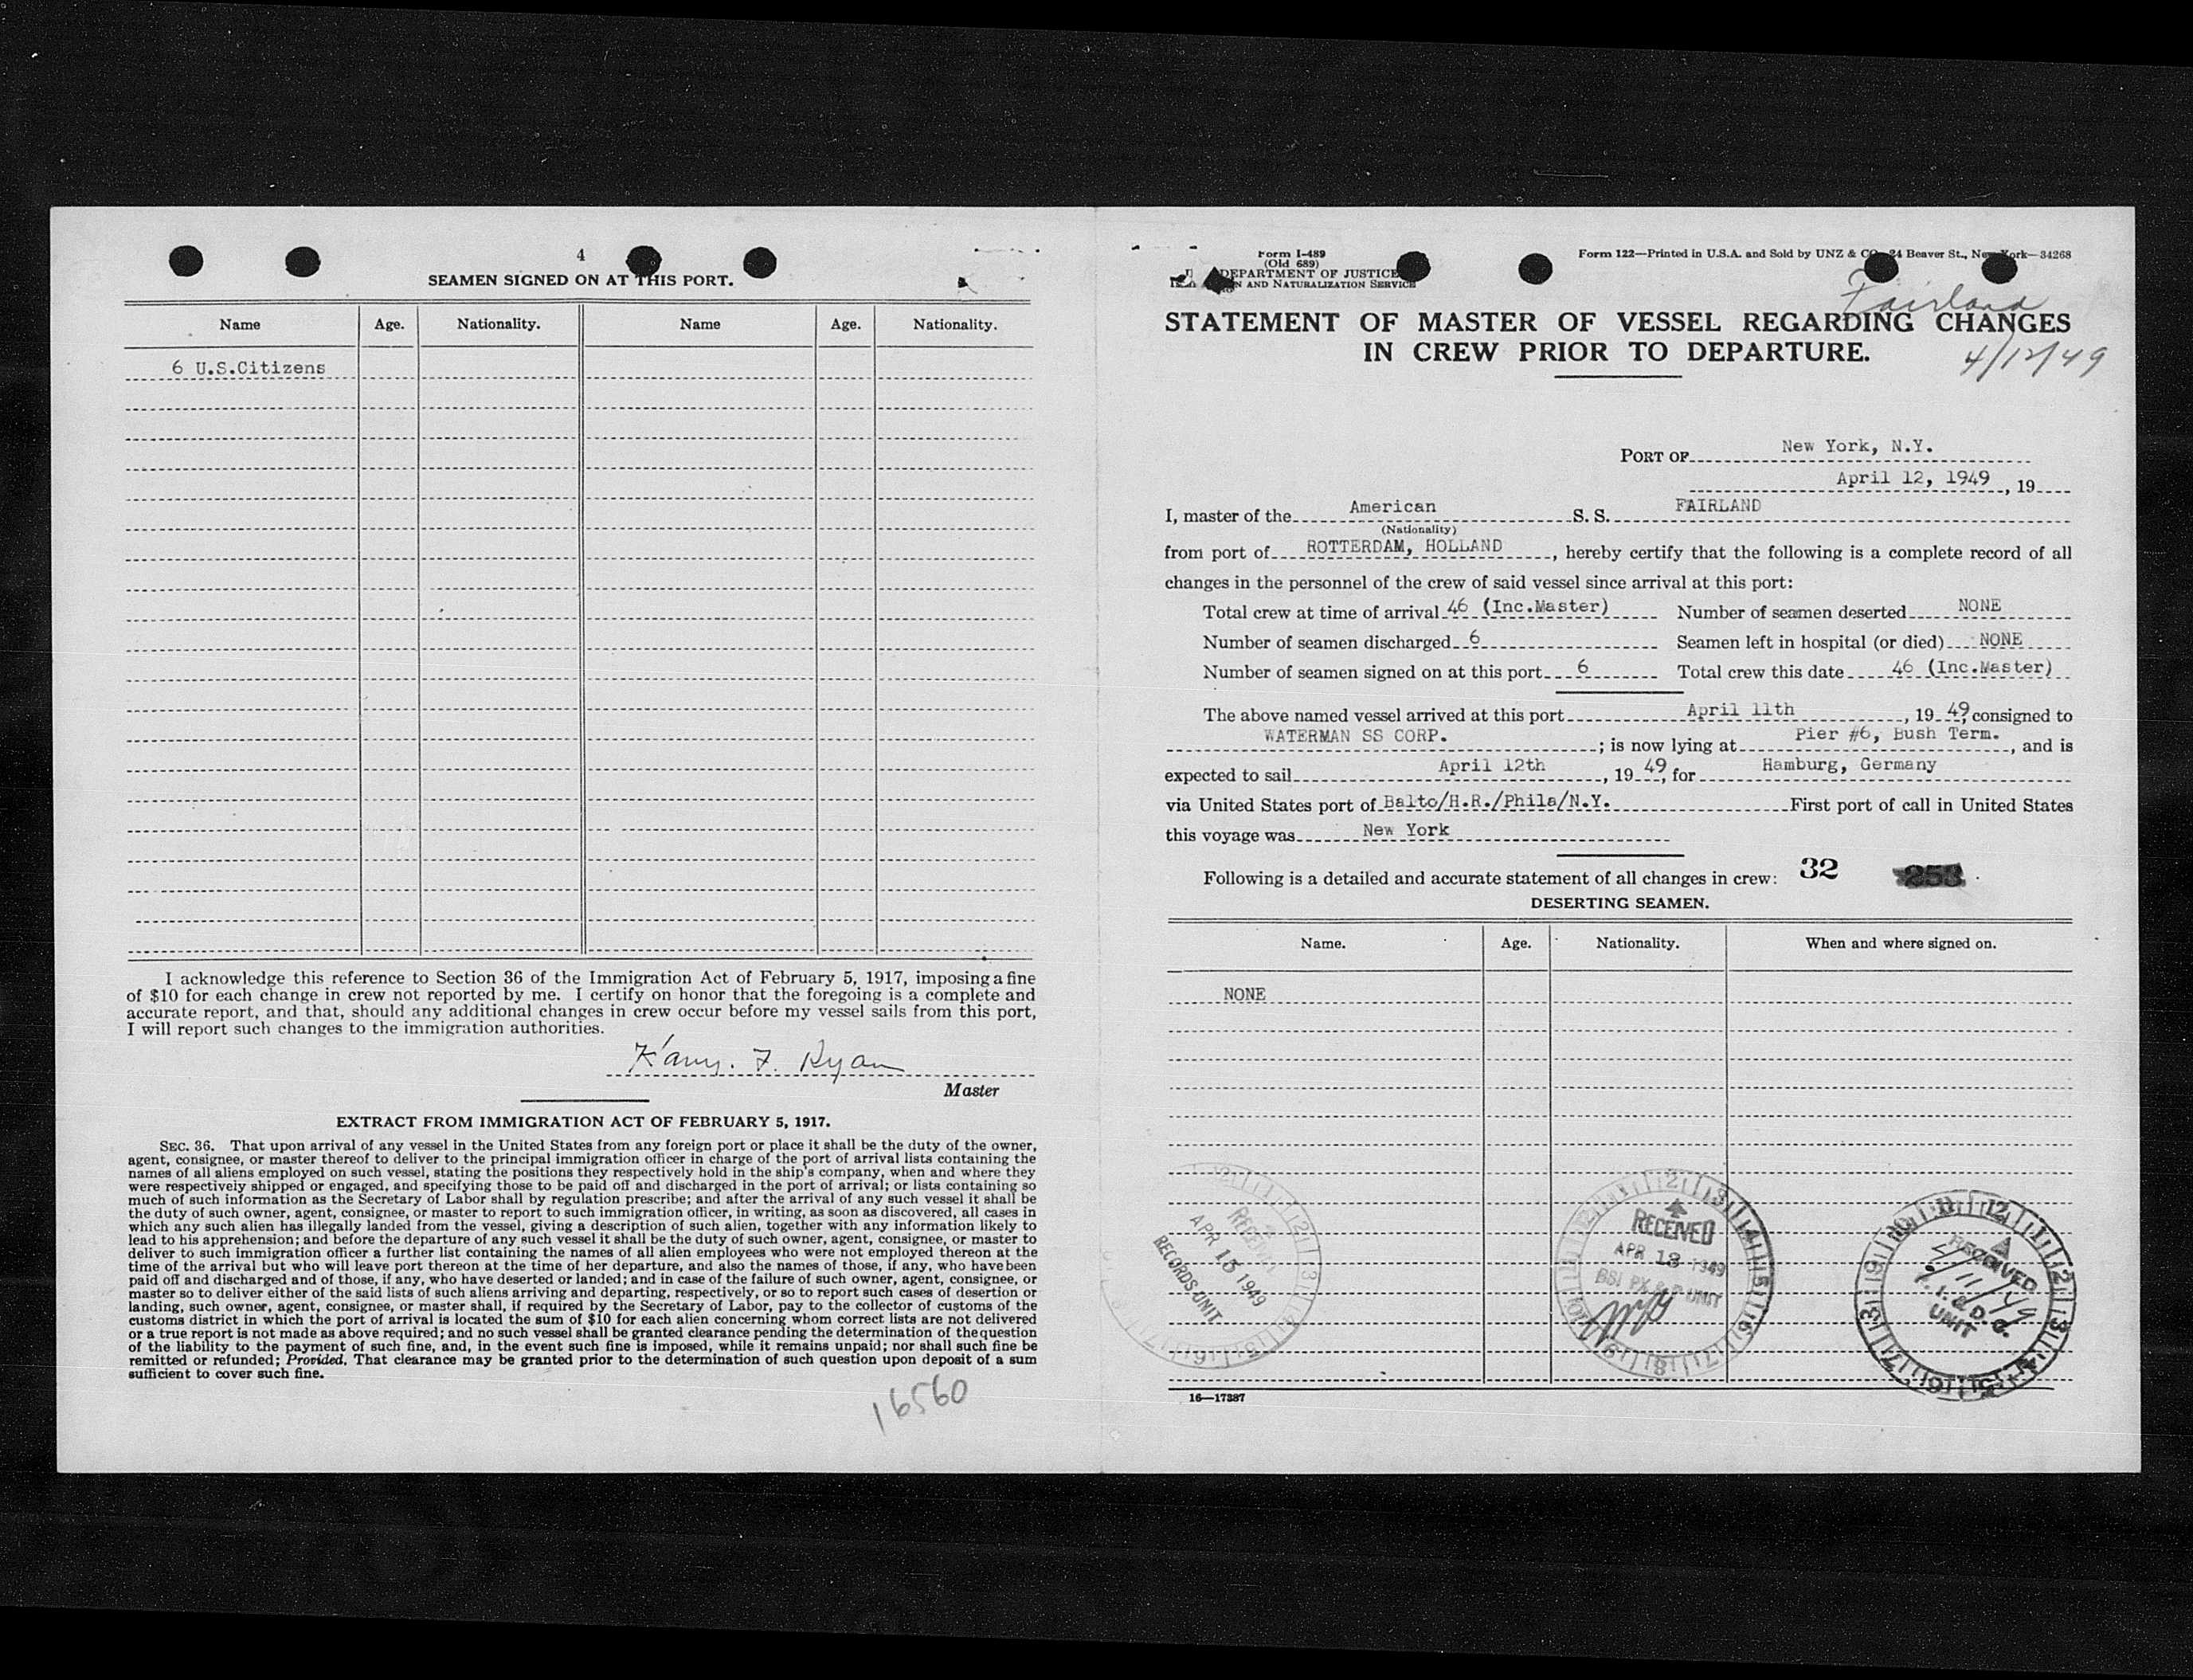 4
SEAMEN SIGNED ON AT THIS PORT.
Name Age. Nationality. Name Age. Nationality.
6 U.S.Citizens
I acknowledge this reference to Section 36 of the Immigration Act of February 5, 1917, imposing a fine
of $10 for each change in crew not reported by me. I certify on honor that the foregoing is a complete and
accurate report, and that, should any additional changes in crew occur before my vessel sails from this port,
I will report such changes to the immigration authorities.
F. Ryan
Master
EXTRACT FROM IMMIGRATION ACT OF FEBRUARY 5, 1917.
SEC. 36. That upon arrival of any vessel in the United States from any foreign port or place it shall be the duty of the owner,
agent, consignee, or master thereof to deliver to the principal immigration officer in charge of the port of arrival lists containing the
names of all aliens employed on such vessel, stating the positions they respectively hold in the ship's company, when and where they
were respectively shipped or engaged, and specifying those to be paid off and discharged in the port of arrival; or lists containing so
much of such information as the Secretary of Labor shall by regulation prescribe; and after the arrival of any such vessel it shall be
the duty of such owner, agent, consignee, or master to report to such immigration officer, in writing, as soon as discovered, all cases in
which any such alien has illegally landed from the vessel, giving a description of such alien, together with any information likely to
lead to his apprehension; and before the departure of any such vessel it shall be the duty of such owner, agent, consignee, or master to
deliver to such immigration officer a further list containing the names of all alien employees who were not employed thereon at the
time of the arrival but who will leave port thereon at the time of her departure, and also the names of those, if any, who have been
paid off and discharged and of those, if any, who have deserted or landed; and in case of the failure of such owner, agent, consignee, or
master so to deliver either of the said lists of such aliens arriving and departing, respectively, or so to report such cases of desertion or
landing, such owner, agent, consignee, or master shall, if required by the Secretary of Labor, pay to the collector of customs of the
customs district in which the port of arrival is located the sum of $10 for each alien concerning whom correct lists are not delivered
or a true report is not made as above required; and no such vessel shall be granted clearance pending the determination of the question
of the liability to the payment of such fine, and, in the event such fine is imposed, while it remains unpaid; nor shall such fine be
remitted or refunded; Provided, That clearance may be granted prior to the determination of such question upon deposit of a sum
sufficient to cover such fine.
16560
Form I-489
(Old 689)
DEPARTMENT OF JUSTICE
AND NATURALIZATION SERVICE
Form 122—Printed in U.S.A. and Sold by UNZ & CO., 24 Beaver St., New York—34268
Fairland
STATEMENT OF MASTER OF VESSEL REGARDING CHANGES
IN CREW PRIOR TO DEPARTURE.
4/12/49
PORT OF New York, N.Y.
April 12, 1949, 19
I, master of the American S. S. FAIRLAND
(Nationality)
from port of ROTTERDAM, HOLLAND, hereby certify that the following is a complete record of all
changes in the personnel of the crew of said vessel since arrival at this port:
Total crew at time of arrival 46 (Inc.Master) Number of seamen deserted NONE
Number of seamen discharged 6 Seamen left in hospital (or died) NONE
Number of seamen signed on at this port 6 Total crew this date 46 (Inc.Master)
The above named vessel arrived at this port April 11th, 19 49, consigned to
WATERMAN SS CORP.; is now lying at Pier #6, Bush Term., and is
expected to sail April 12th, 19 49, for Hamburg, Germany
via United States port of Balto/H.R./Phila/N.Y. First port of call in United States
this voyage was New York
Following is a detailed and accurate statement of all changes in crew: 32 253
DESERTING SEAMEN.
Name. Age. Nationality. When and where signed on.
NONE
RECEIVED
APR 15 1949
RECORDS UNIT
RECEIVED
APR 13 1949
BSI UNIT
RECEIVED
4/11/49
UNIT
16—17387